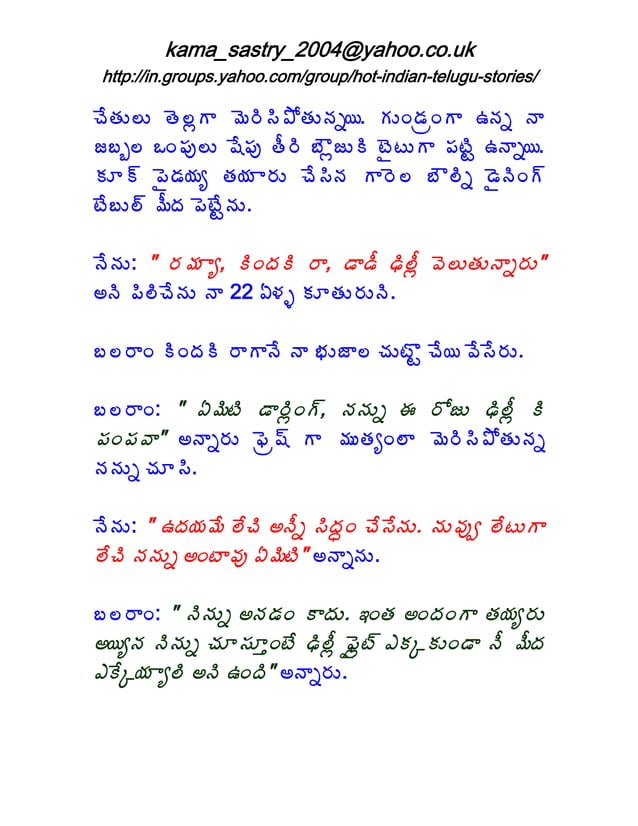 kama_sastry_2004@yahoo.co.uk
http://in.groups.yahoo.com/group/hot-indian-telugu-stories/
చేతులు తెల్లగా మెరిసిపోతున్నయి. గుండ్రంగా ఉన్న నా
జబ్బల ఒంపులు షేపు తీరి బ్లౌజుకి టైటుగా పట్టి ఉన్నాయి.
కూక్ పైడయ్య తయారు చేసిన గారెల బౌల్ని డైనింగ్
టేబుల్ మీద పెట్టేను.
నేను: " రమ్యా, కిందకి రా, డాడీ ఢిల్లీ వెలుతున్నారు"
అని పిలిచేను నా 22 ఏళ్ళ కూతురుని.
బలరాం కిందకి రాగానే నా భుజాల చుట్టొ చేయి వేసేరు.
బలరాం: " ఏమిటి డార్లింగ్, నన్ను ఈ రోజు ఢిల్లీ కి
పంపవా" అన్నారు ఫ్రెష్ గా ముత్యంలా మెరిసిపోతున్న
నన్ను చూసి.
నేను: " ఉదయమే లేచి అన్నీ సిద్ధం చేసేను. నువ్వు లేటుగా
లేచి నన్ను అంటావు ఏమిటి" అన్నాను.
బలరాం: " నిన్ను అనడం కాదు. ఇంత అందంగా తయ్యరు
అయ్యిన నిన్ను చూస్తూంటే ఢిల్లీ ఫ్లైట్ ఎక్కకుండా నీ మీద
ఎక్కేయ్యాలి అని ఉంది" అన్నారు.